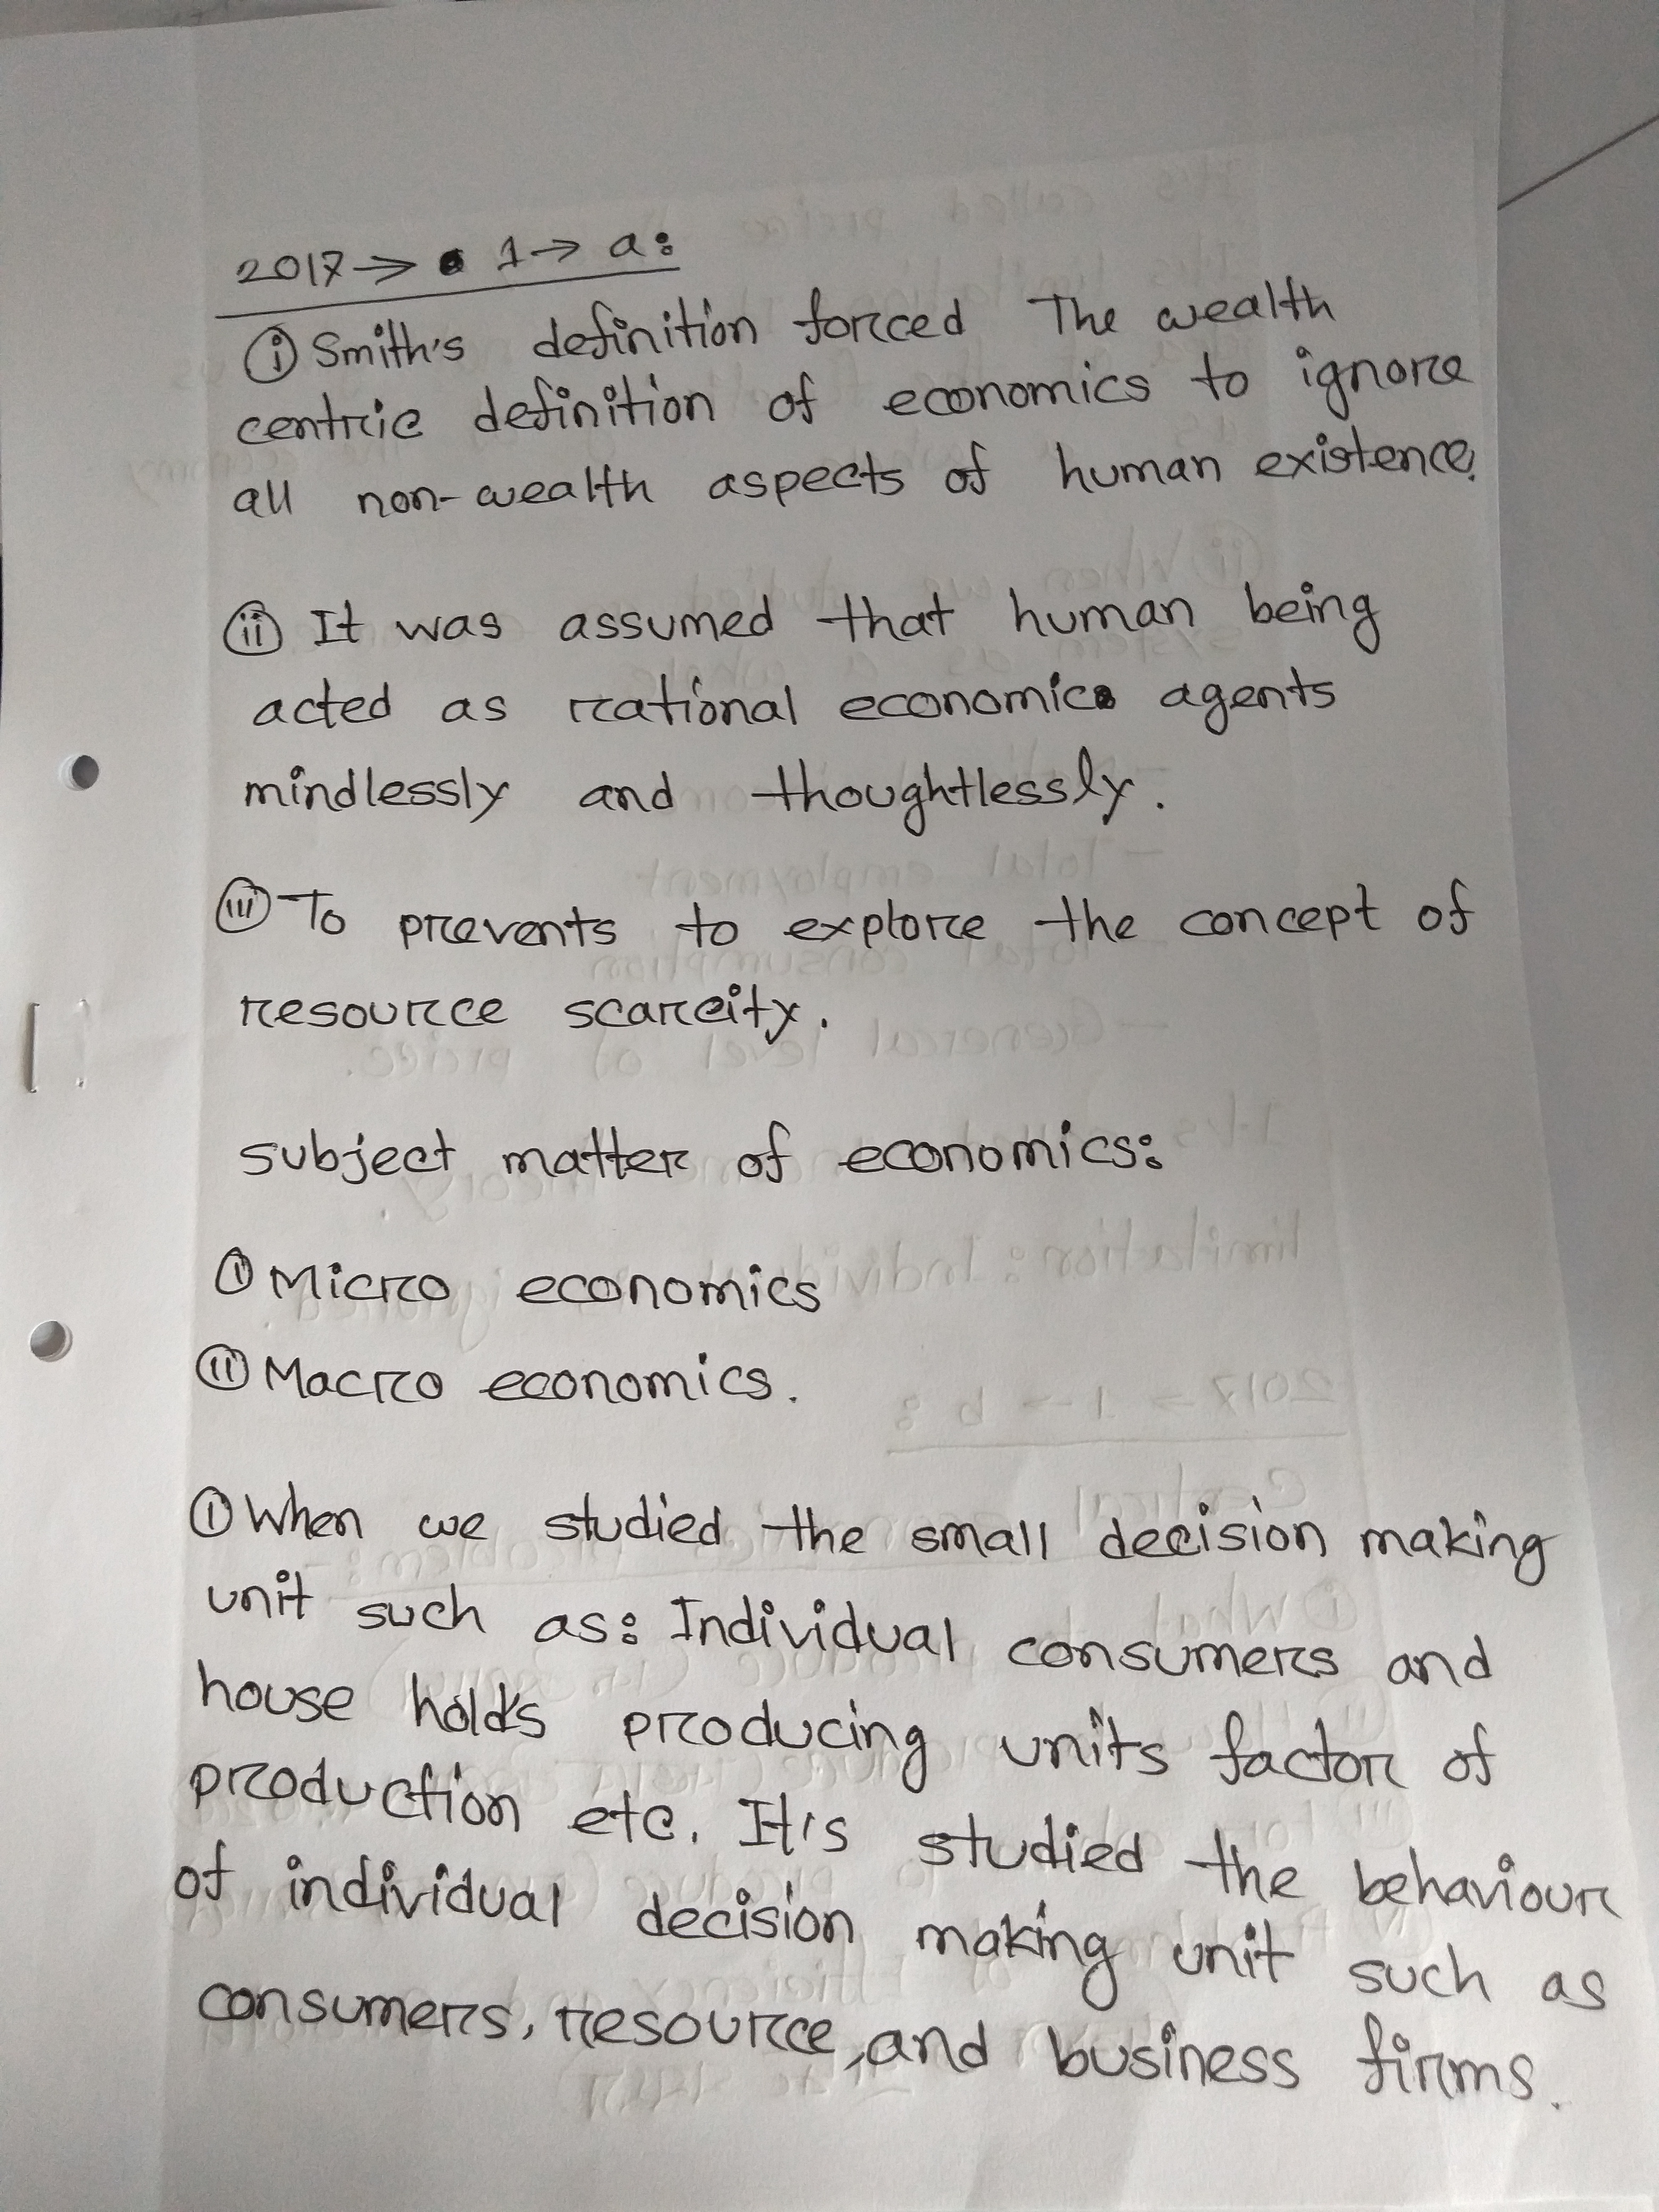 2017 → 1 → a:
(i) Smith's definition forced The wealth
centric definition of economics to ignore
all non-wealth aspects of human existence.
(ii) It was assumed that human being
acted as rational economic agents
mindlessly and thoughtlessly.
(iii) To prevents to explore the concept of
resource scarcity.
subject matter of economics:
(i) Micro economics
(ii) Macro economics.
(i) When we studied the small decision making
unit such as: Individual consumers and
house hold's producing units factor of
production etc. It's studied the behaviour
of individual decision making unit such as
consumers, resource, and business firms.